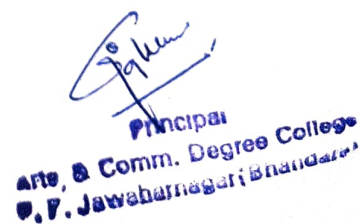 Principal
Arts, & Comm. Degree College
P. P. Jawaharnagar (Bhandara)